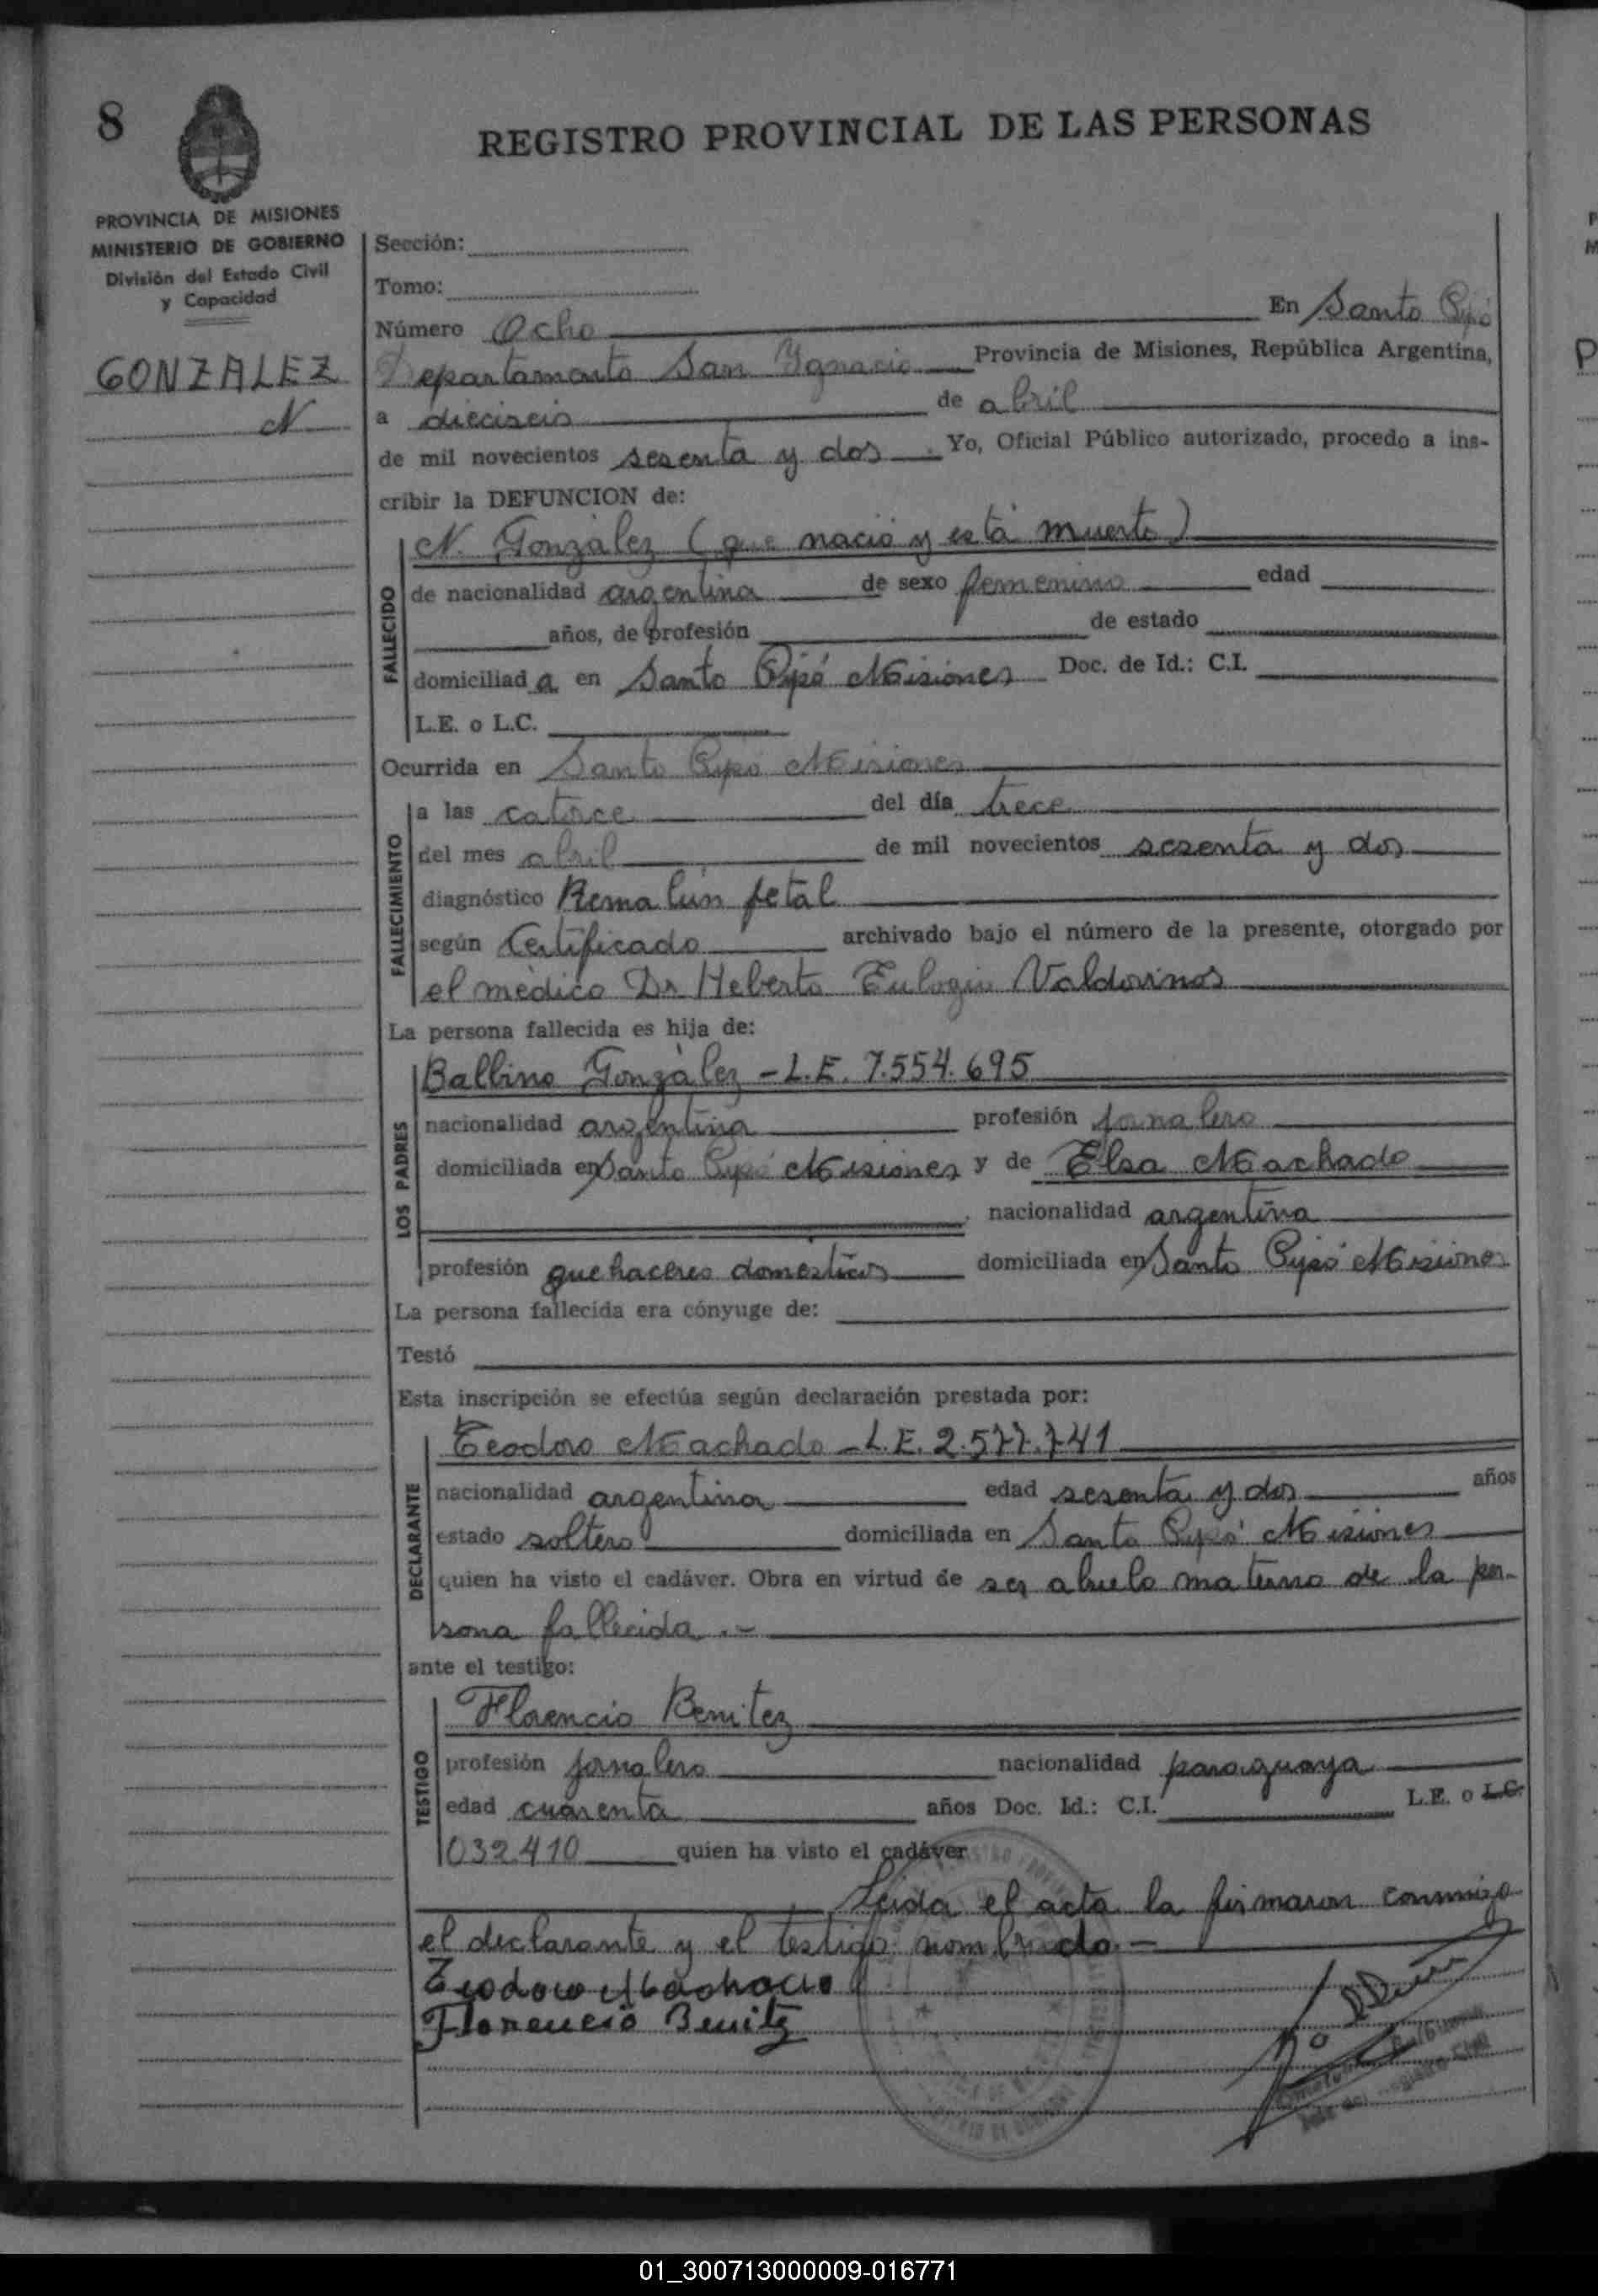 8
REGISTRO PROVINCIAL DE LAS PERSONAS
PROVINCIA DE MISIONES
MINISTERIO DE GOBIERNO
División del Estado Civil
y Capacidad
GONZALEZ
N
Sección:
Tomo:
Número Ocho En Santo Pipó
Departamento San Ygnacio Provincia de Misiones, República Argentina,
a dieciseis de abril
de mil novecientos sesenta y dos . Yo, Oficial Público autorizado, procedo a ins-
cribir la DEFUNCION de:
N. González (que nació y está muerto)
FALLECIDO
de nacionalidad argentina de sexo femenino edad
años, de profesión de estado
domiciliad a en Santo Pipó Misiones Doc. de Id.: C.I.
L.E. o L.C.
Ocurrida en Santo Pipó Misiones
FALLECIMIENTO
a las catorce del día trece
del mes abril de mil novecientos sesenta y dos
diagnóstico fetal
según Certificado archivado bajo el número de la presente, otorgado por
el médico Dr Heberto Eulogio Valdovinos
La persona fallecida es hija de:
LOS PADRES
Balbino González - L.E. 7.554.695
nacionalidad argentina profesión jornalero
domiciliada en Santo Pipó Misiones y de Elsa Machado
nacionalidad argentina
profesión quehaceres domésticos domiciliada en Santo Pipó Misiones
La persona fallecida era cónyuge de:
Testó
Esta inscripción se efectúa según declaración prestada por:
DECLARANTE
Teodoro Machado - L.E. 2.577.741
nacionalidad argentina edad sesenta y dos años
estado soltero domiciliada en Santo Pipó Misiones
quien ha visto el cadáver. Obra en virtud de ser abuelo materno de la per-
sona fallecida .-
ante el testigo:
TESTIGO
Florencio Benitez
profesión jornalero nacionalidad paraguaya
edad cuarenta años Doc. Id.: C.I. L.E. o L.C.
032.410 quien ha visto el cadáver
Leida el acta la firmaron conmigo
el declarante y el testigo nombrado.-
Teodoro Machado
Florencio Benitez
01_300713000009-016771